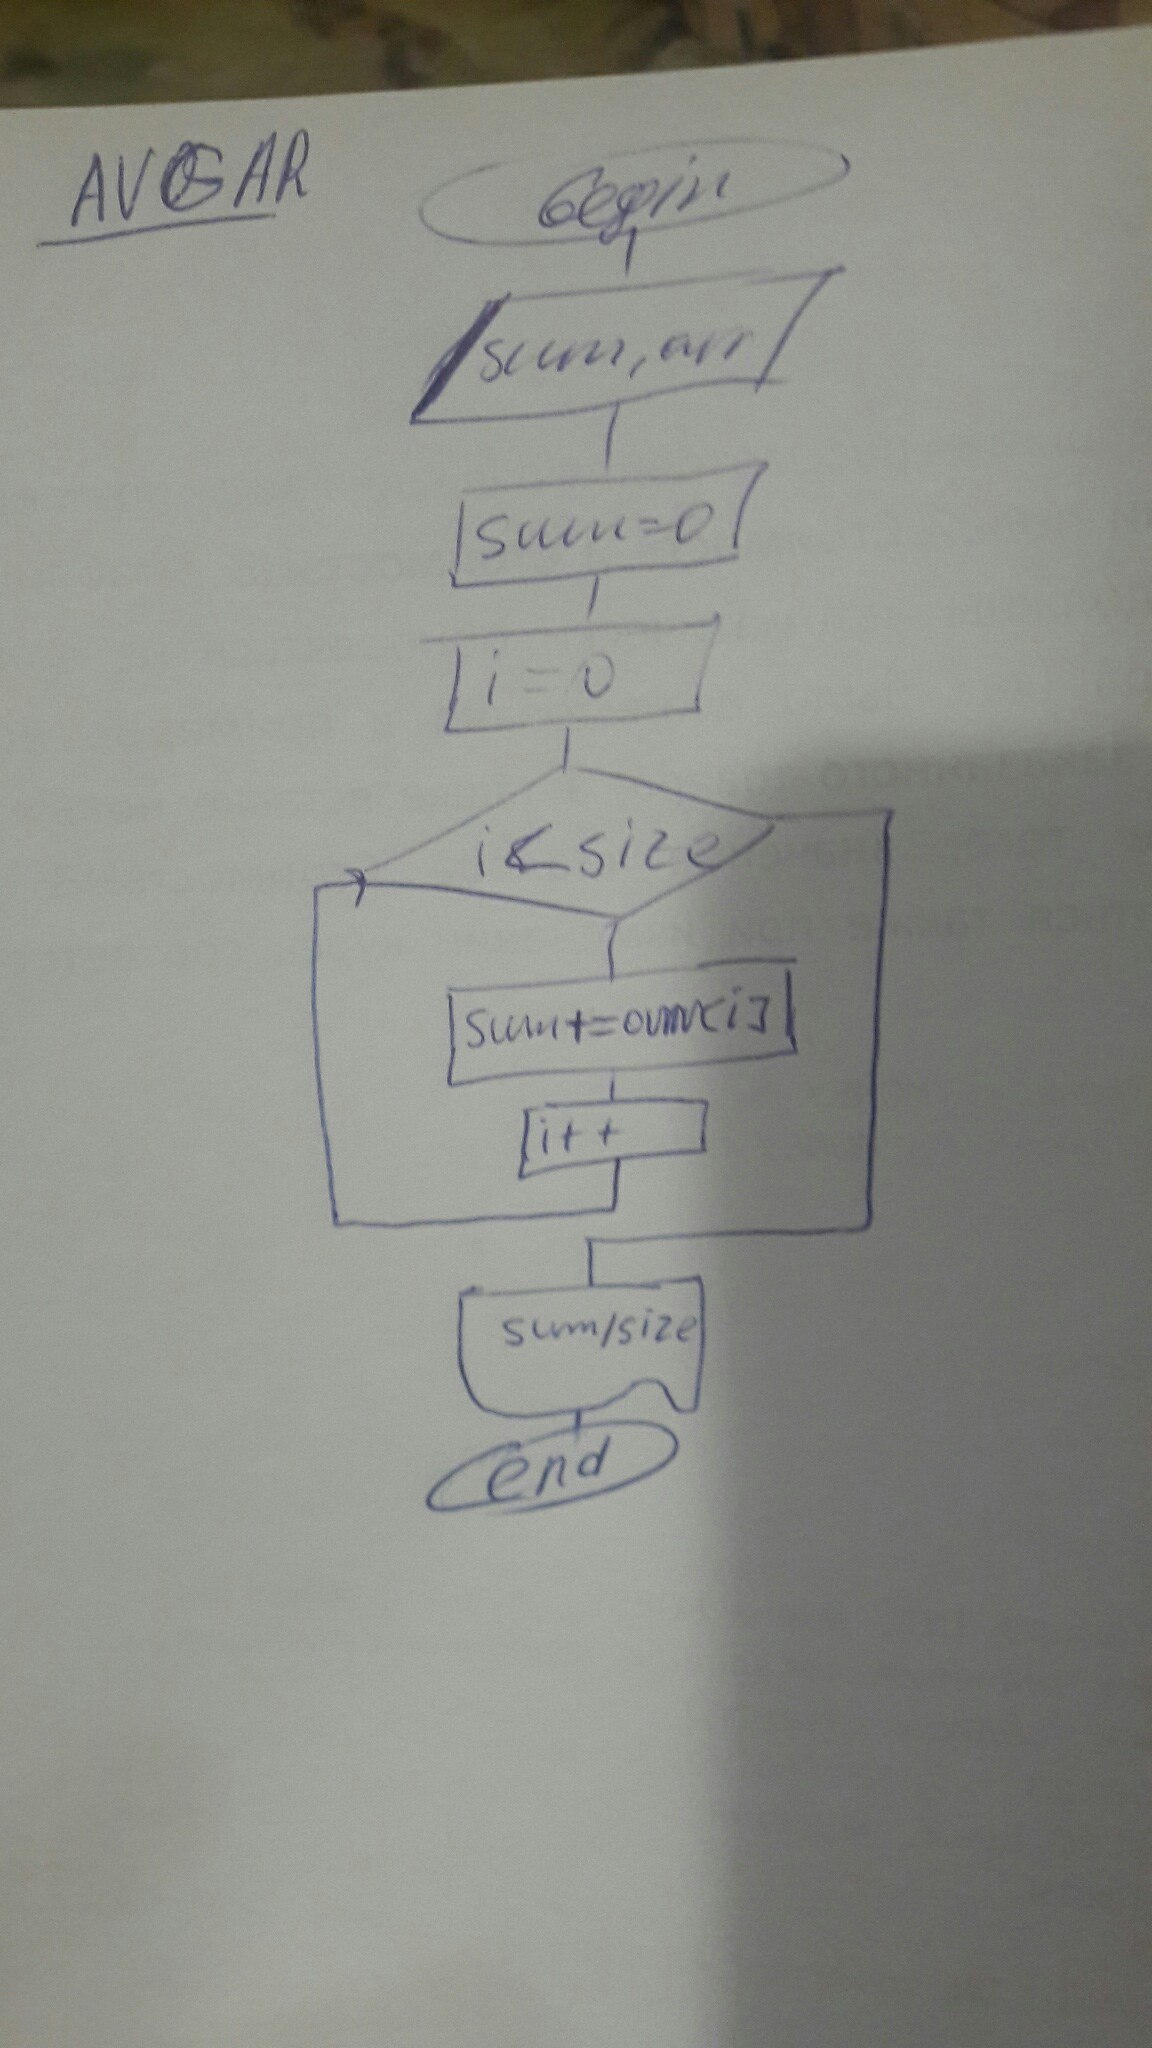 AVGAR
begin
sum, arr
sum=0
i=0
i<size
sum+=arr[i]
i++
sum/size
end